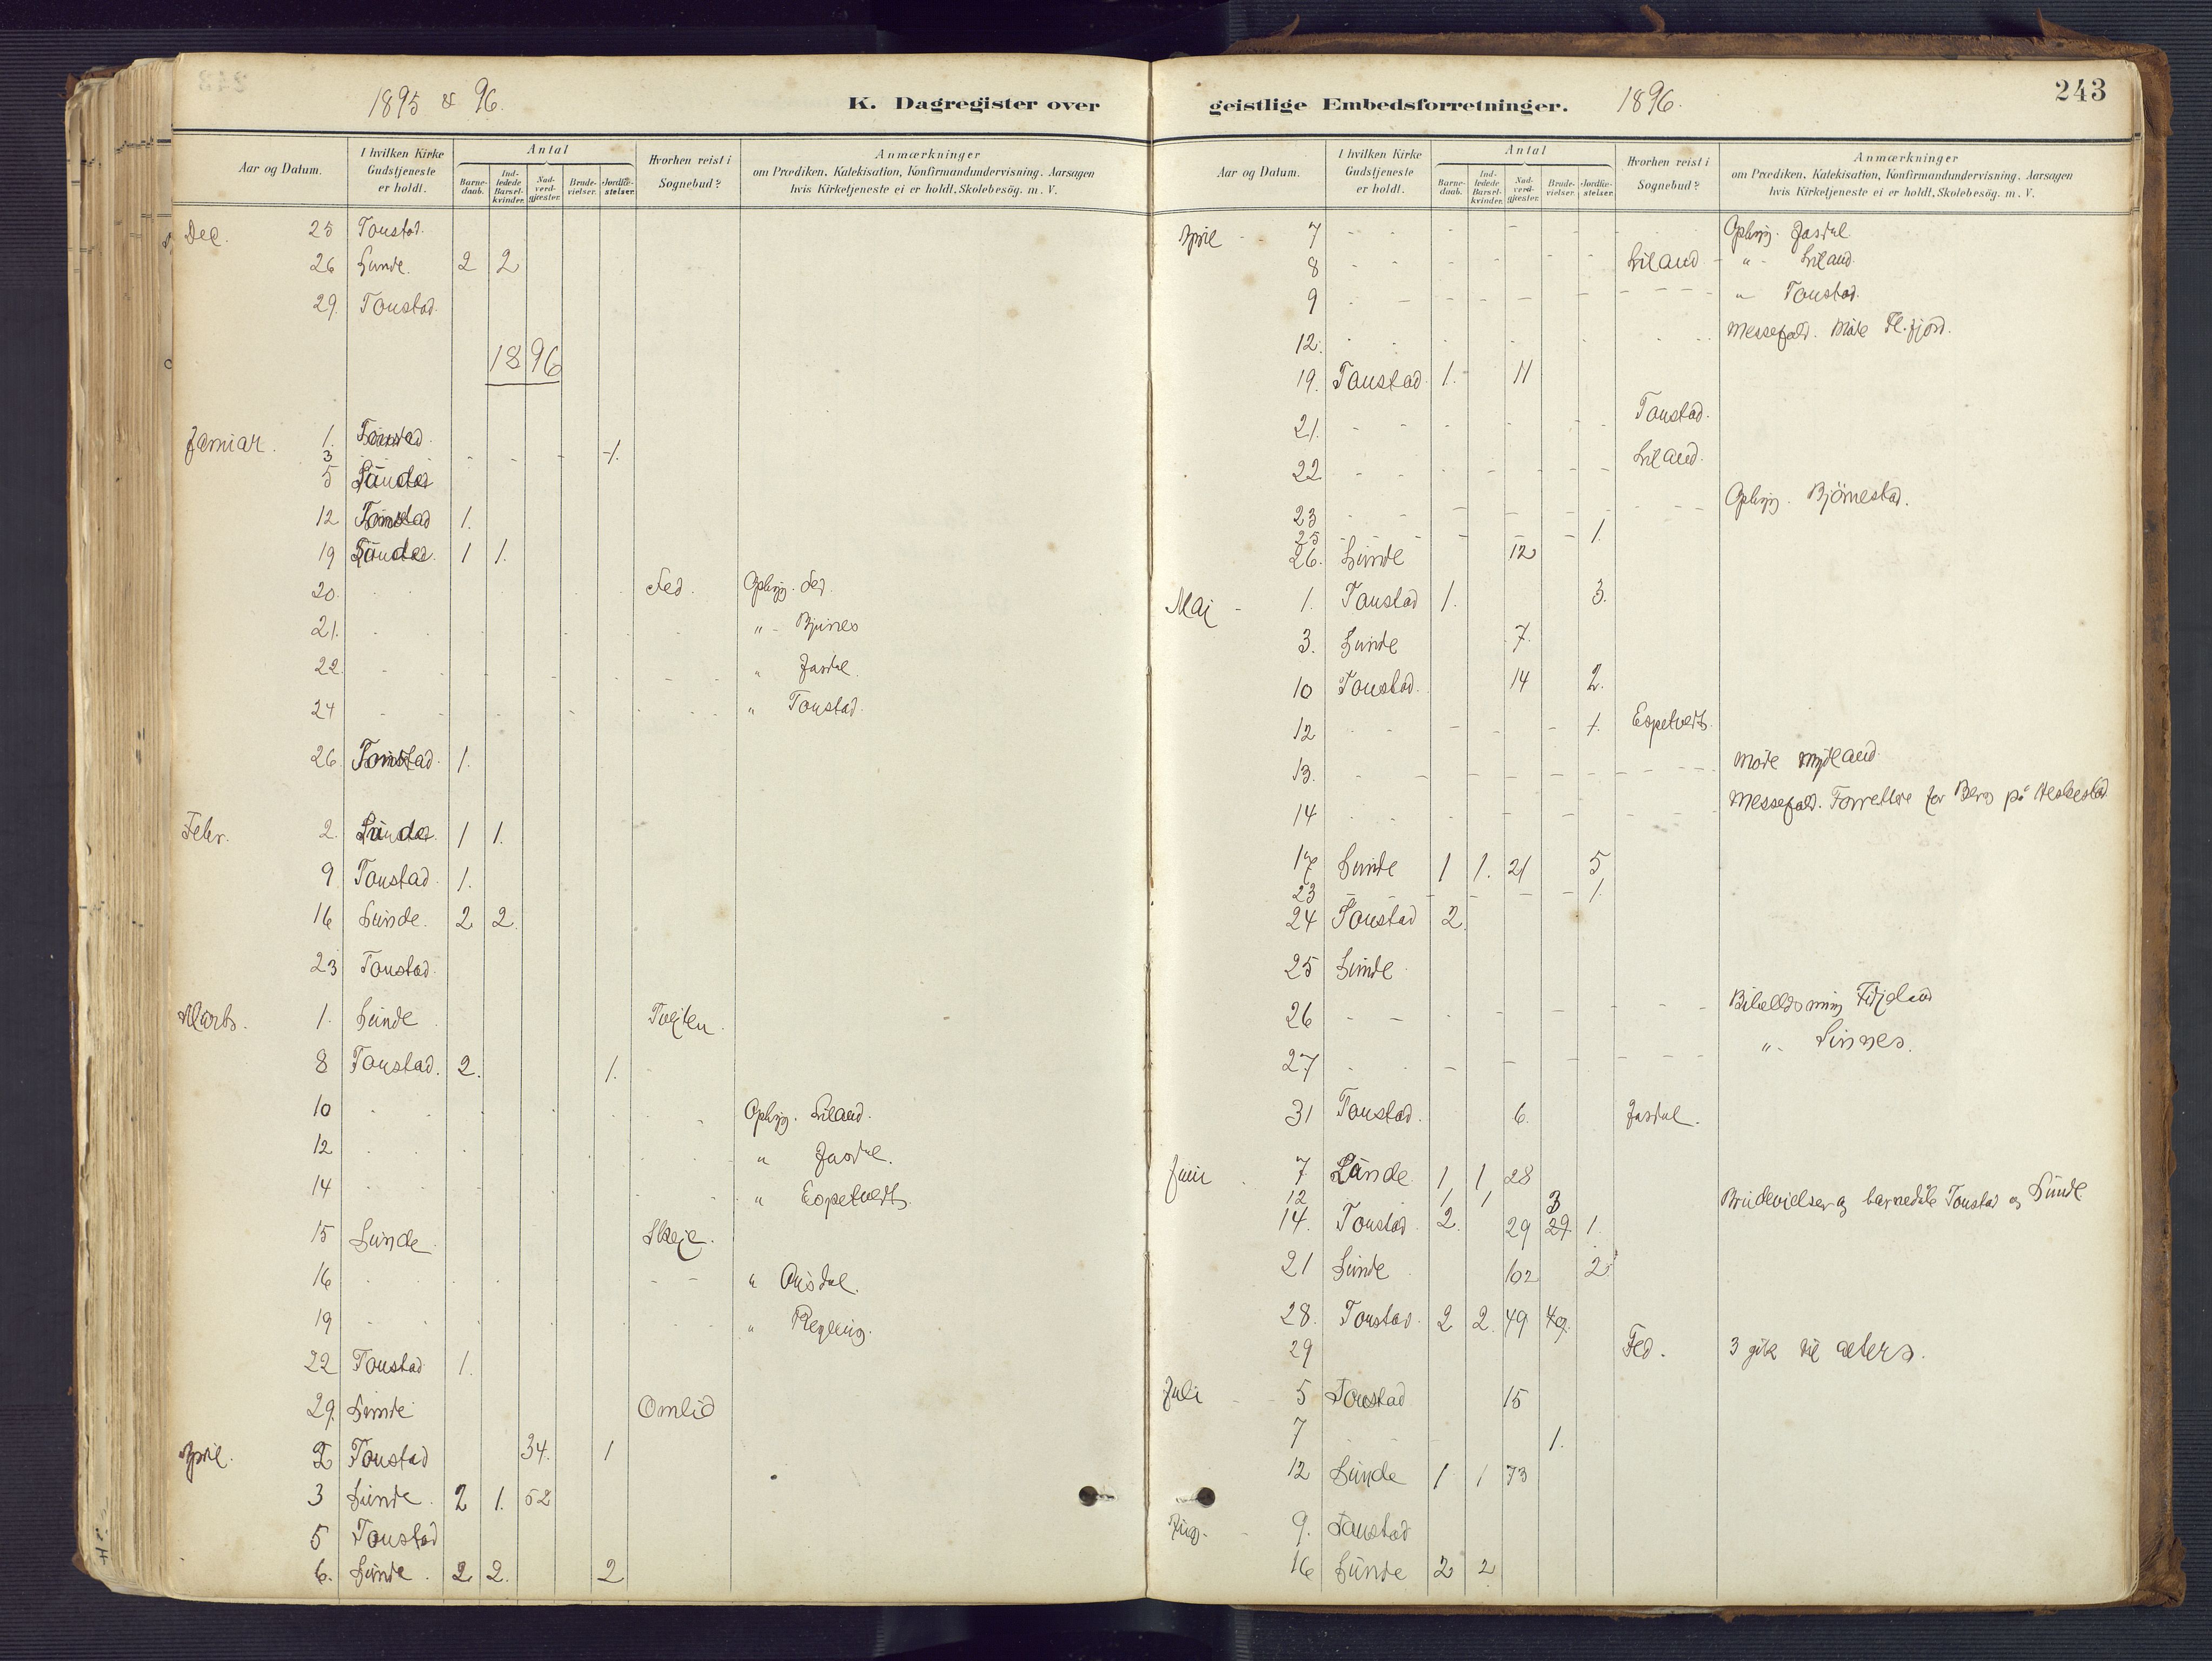 1895 & 96.
K. Dagregister over
Aar og Datum. I hvilken Kirke Gudstjeneste er holdt. Antal Barnedaab. Indledede Barselkvinder. Nadverdgjæster. Brudevielser. Jordfæstelser. Hvorhen reist i Sognebud? Anmærkninger om Prædiken, Katekisation, Konfirmandundervisning, Aarsagen hvis Kirketjeneste ei er holdt, Skolebesög. m. V.
Dec. 25 Tonstad.
26 Lunde. 2 2
29. Tonstad.
1896
Januar. 1. Tonstad.
3 - - - - 1.
5 Lunde
12 Tonstad 1.
19 Lunde. 1 1.
20. Fed. Ophyg. Fed.
21. " - Bjunes
22. " Josdal.
24 " Tonstad.
26. Tonstad. 1.
Febr. 2. Lunde. 1 1.
9 Tonstad. 1.
16 Lunde. 2 2.
23 Tonstad.
Marts. 1. Lunde
8 Tonstad. 2. 1.
10 Ophyg. Liland.
12 " Josdal.
14 " Espetvedt.
15 Lunde. Skeje.
16 " Ousdal.
19 "
22 Tonstad 1.
29. Lunde Omlid
April. 2 Tonstad 34. 1
3 Lunde. 2 1. 52
5 Tonstad
6. Lunde. 2. 2. 2
243
geistlige Embedsforretninger. 1896.
Aar og Datum. I hvilken Kirke Gudstjeneste er holdt. Antal Barnedaab. Indledede Barselkvinder. Nadverdgjæster. Brudevielser. Jordfæstelser. Hvorhen reist i Sognebud? Anmærkninger om Prædiken, Katekisation, Konfirmandundervisning, Aarsagen hvis Kirketjeneste ei er holdt, Skolebesög. m. V.
April - 7 Ophyg. Josdal
8 Liland - " - Liland.
9 " Tonstad.
12. Messefald. Möde Fl.fjord.
19. Tonstad. 1. 11
21. Tonstad.
22 Liland.
23 Ophyg. Björnestad.
25 - - - - 1.
26. Lunde 12
Mai - 1. Tonstad 1. 3.
3. Lunde 7.
10 Tonstad. 14 2.
12 1. Espetvedt.
13. Möde Mydland.
14 Messefald. Forrettede for Berg på Heskestad
17 Lunde 1 1. 21 5
23 - - - - 1.
24 Tonstad 2.
25 Lunde
26 Fidjeland
27 " - Sinnes.
31 Tonstad. 6. Josdal.
Juni 7 Lunde 1 1 28
12 1 1 3 Brudevielser og barnedåb Tonstad og Lunde
14. Tonstad. 2. 29 1.
21 Lunde 102 2
28. Tonstad. 2 2. 49
29 Fed. 3 gik til alters.
Juli - 5 Tonstad 15
7 1.
12 Lunde 1 1 73
Aug. - 9. Tonstad
16 Lunde 2 2